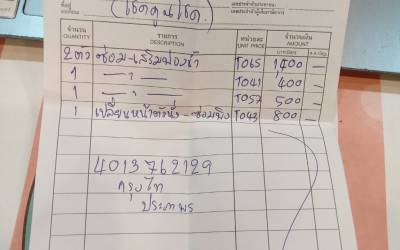 ที่อยู่
ADDRESS
(โชคคูณโชค.)
เลขประจำตัวผู้เสียภาษีอากร
จำนวน รายการ หน่วยละ จำนวนเงิน
QUANTITY DESCRIPTION UNIT PRICE AMOUNT
2 ตัว ซ่อม-เสริมฟองน้ำ T065 1,400 —
1 — " — T041 400 —
1 — " — T057 500 —
1 เปลี่ยนหน้าตัวนั่ง - ซ่อมพิง T043 800 —
4013762129
กรุงไท
ประภาพร